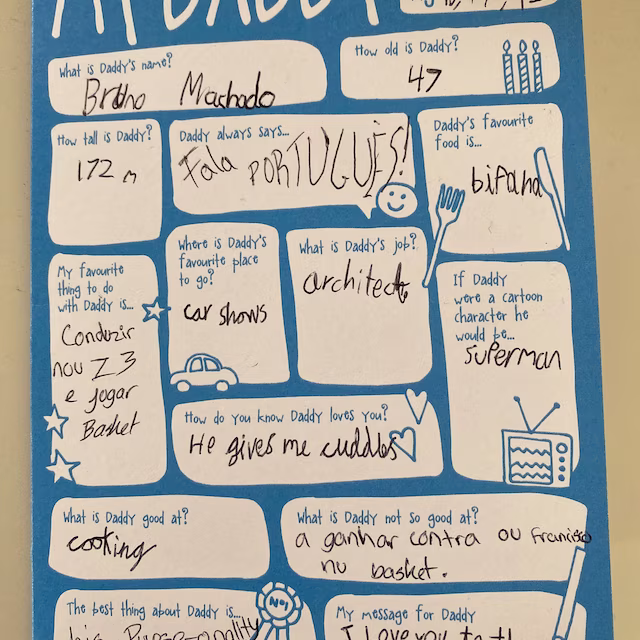 MY DADDY
What is Daddy's name?
Bruno Machado
How old is Daddy?
47
How tall is Daddy?
172 m
Daddy always says...
Fala PORTUGUÊS!
Daddy's favourite
food is...
bifana
My favourite
thing to do
with Daddy is...
Conduzir
nou Z3
e jogar
Basket
Where is Daddy's
favourite place
to go?
car shows
What is Daddy's job?
architect
If Daddy
were a cartoon
character he
would be...
superman
How do you know Daddy loves you?
He gives me cuddles
What is Daddy good at?
cooking
What is Daddy not so good at?
a ganhar contra ou Francisco
nu basket.
The best thing about Daddy is...
his
Nº1
My message for Daddy
I love you to th